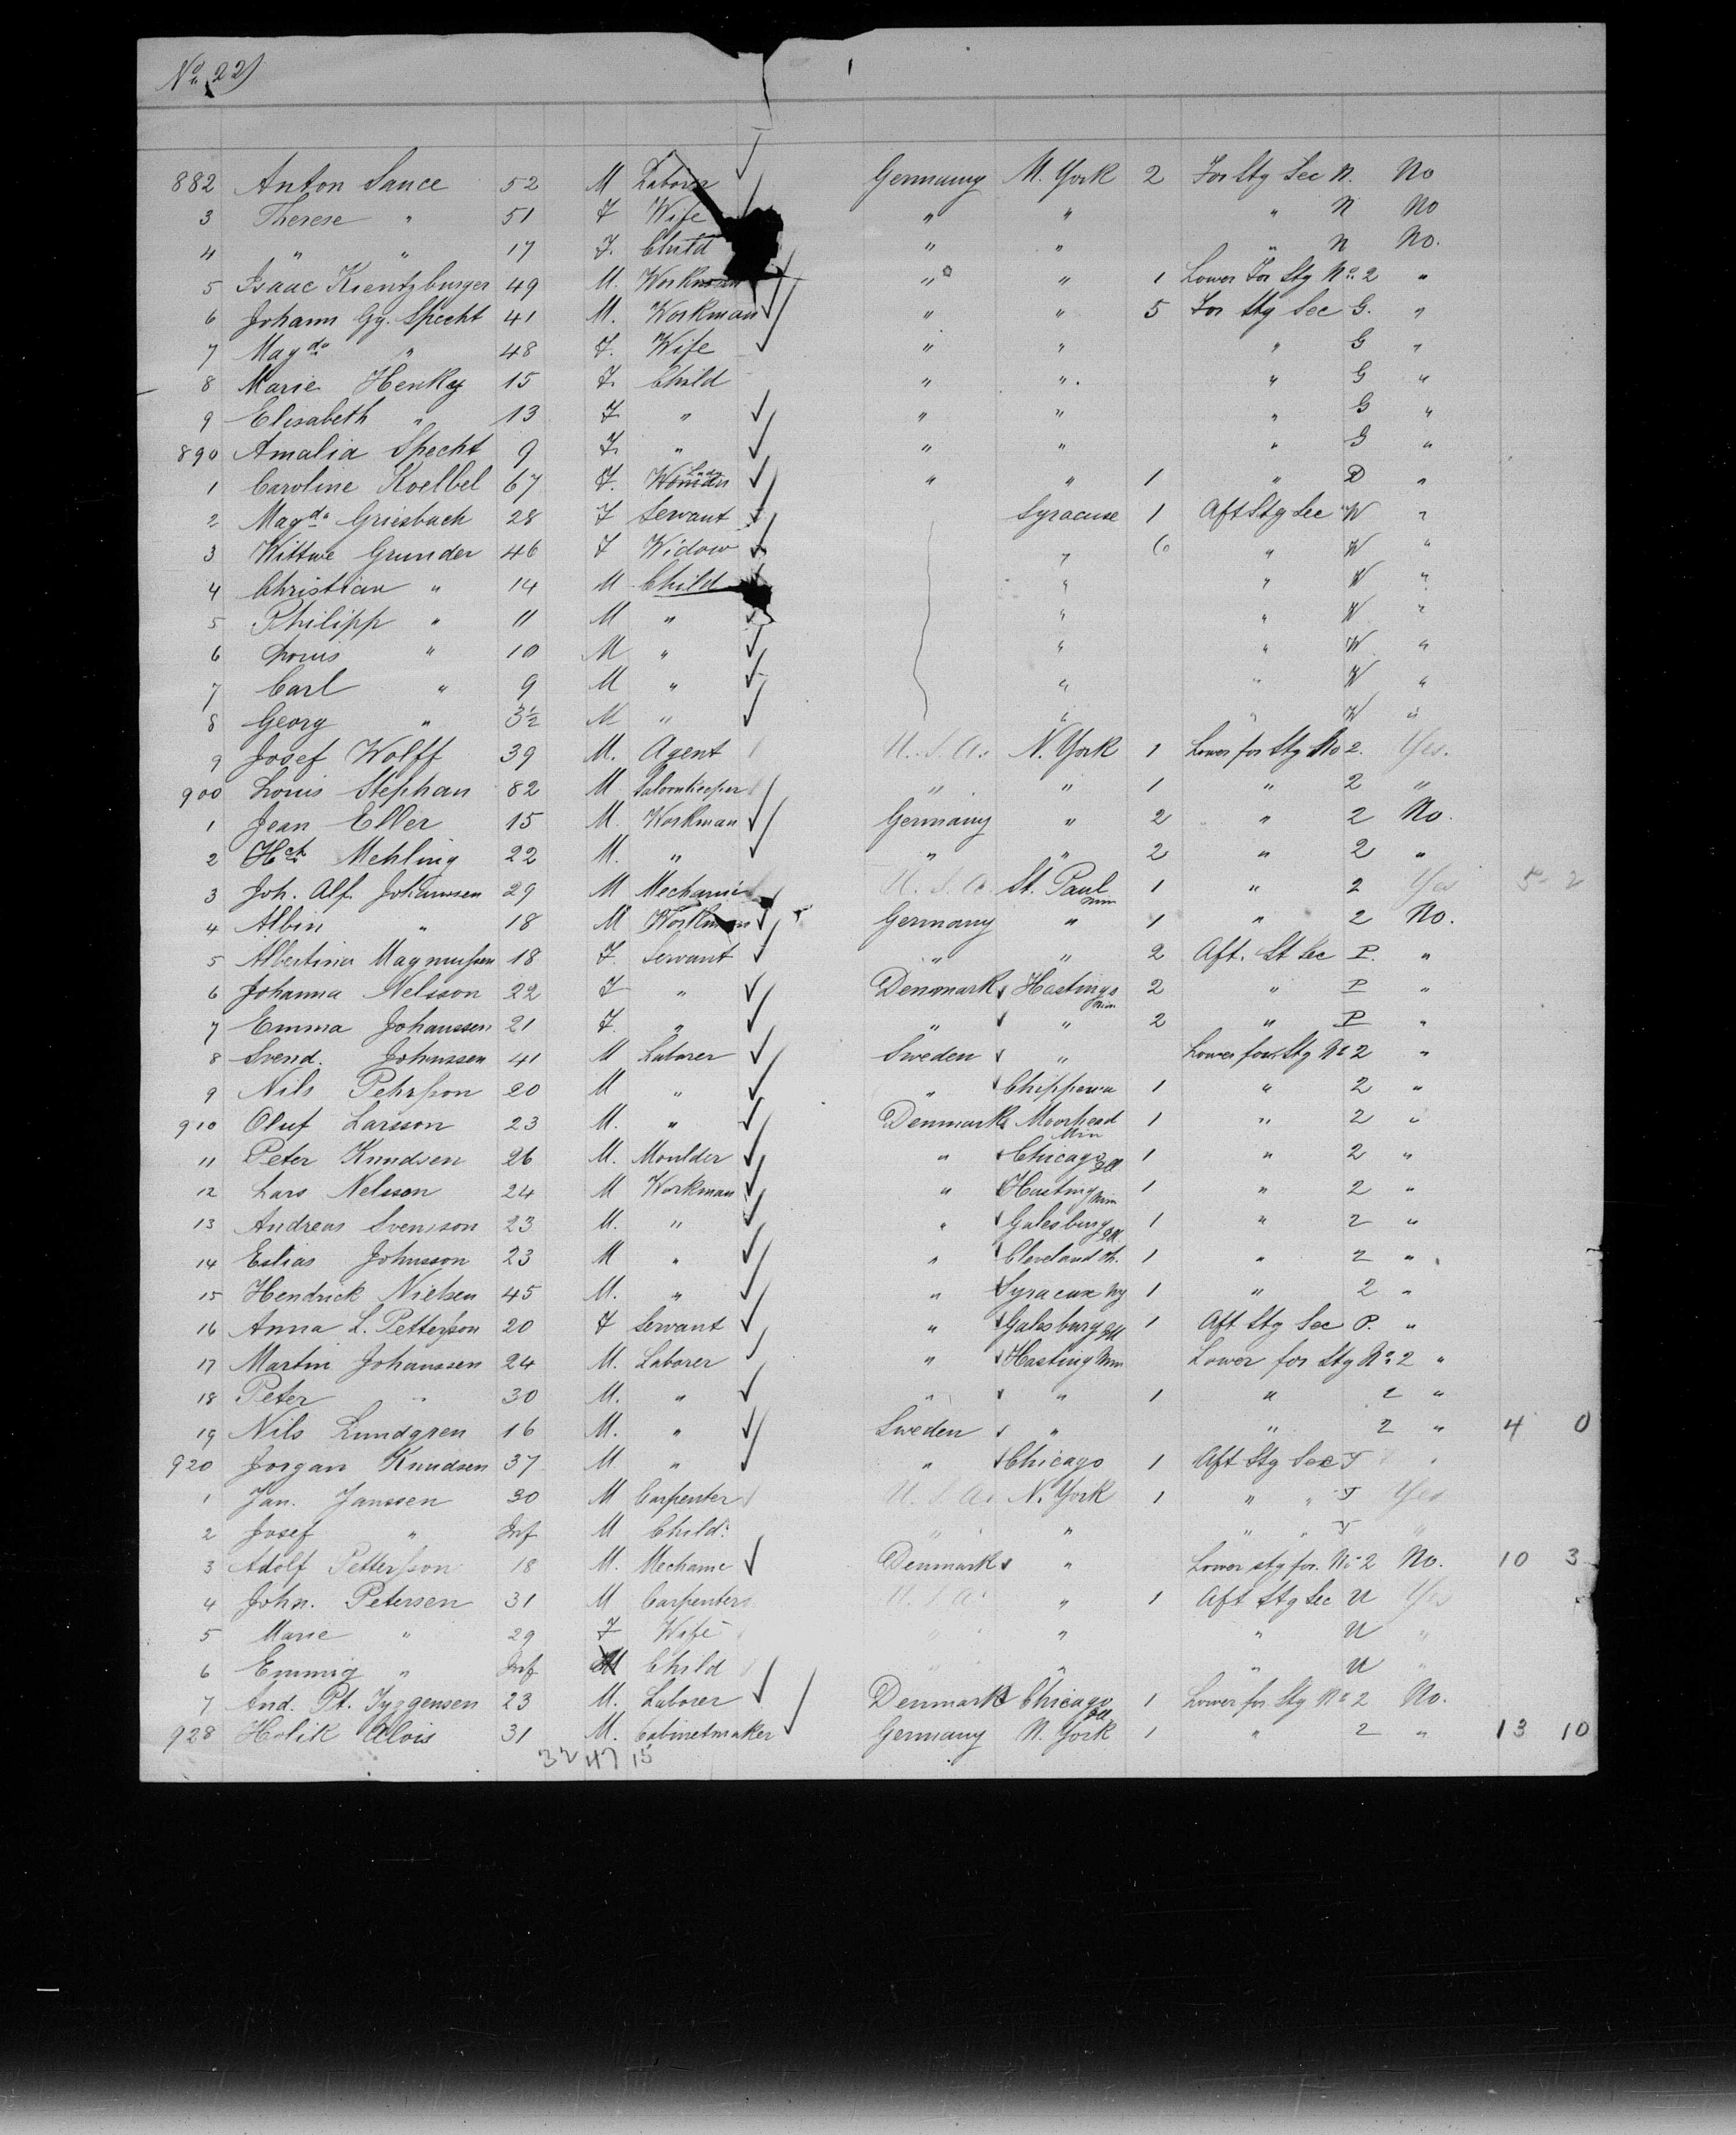 No. 22)
882 Anton Sauce 52 M Laborer Germany N. York 2 For Stg Sec N. No
3 Therese " 51 F Wife " " " N No
4 " " 17 F. Child " " " N No.
5 Isaac Kientzburger 49 M. Workman " " 1 Lower For Stg No. 2 "
6 Johann Gg. Specht 41 M. Workman " " 5 For Stg Sec G. "
7 Magda " 48 F. Wife " " " G "
8 Marie Henkey 15 F. Child " " " G "
9 Elisabeth " 13 F " " " " G "
890 Amalia Specht 9 F. " " " " G "
1 Caroline Koelbel 67 F. " " 1 " D "
2 Magda Griesbach 28 F Servant Syracuse 1 Aft Stg Sec W "
3 Wittwe Grunder 46 F Widow " 6 " W "
4 Christian " 14 M Child " " W "
5 Philipp " 11 M " " " W "
6 Louis " 10 M " " " W "
7 Carl " 9 M " " " W "
8 Georg " 3½ M " " " W "
9 Josef Wolff 39 M. Agent U.S.A. N. York 1 Lower for Stg No 2. Yes.
900 Louis Stephan 82 M Saloonkeeper " " 1 " 2 "
1 Jean Eller 15 M. Workman Germany " 2 " 2 No.
2 Hch Mehling 22 M. " " " 2 " 2 "
3 Joh. Alf. Johannsen 29 M Mechanic U.S.A. St. Paul Min 1 " 2 Yes 5 2
4 Albin " 18 M Workman Germany " 1 " 2 No.
5 Albertina Magnussen 18 F. Servant " " 2 Aft. St Sec P. "
6 Johanna Nelsson 22 F " Denmark Hastings Min 2 " P "
7 Emma Johanssen 21 F. " " " 2 " P "
8 Svend. Johnssen 41 M Laborer Sweden " Lower for Stg No 2 "
9 Nils Pehrsson 20 M " " Chippewa 1 " 2 "
910 Oluf Larsson 23 M. " Denmark Moorhead Min 1 " 2 "
11 Peter Knudsen 26 M. Moulder " Chicago Ill 1 " 2 "
12 Lars Nelsson 24 M Workman " Hasting Min 1 " 2 "
13 Andreas Svensson 23 M. " " Galesburg Ill 1 " 2 "
14 Eslias Johnsson 23 M " " Cleveland Oh. 1 " 2 "
15 Hendrick Nielsen 45 M. " " Syracuse Ny 1 " 2 "
16 Anna L. Pettersson 20 F Servant " Galesburg Ill 1 Aft Stg Sec P. "
17 Martin Johanssen 24 M. Laborer " Hasting Min Lower for Stg No. 2 "
18 Peter " 30 M. " " " 1 " 2 "
19 Nils Lundgren 16 M. " Sweden " " 2 " 4 0
920 Jorgan Knudsen 37 M. " " Chicago 1 Aft Stg Sec T "
1 Jan. Janssen 30 M Carpenter U.S.A. N. York 1 " " T Yes
2 Josef " Inf M Child. " " " " T "
3 Adolf Pettersson 18 M. Mechanic Denmark " Lower stg for. No 2 No. 10 3
4 John. Petersen 31 M Carpenter U.S.A. " 1 Aft Stg Sec U Yes
5 Marie " 29 F Wife " " " U "
6 Emmig " Inf M Child " " " U "
7 And. Pt. Jyrgensen 23 M. Laborer Denmark Chicago Ill 1 Lower for Stg No 2 No.
928 Holik Alois 31 M. Cabinetmaker Germany N. York 1 " 2 " 13 10
32 47 15